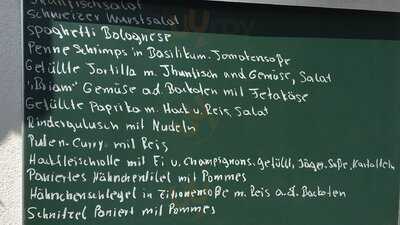 Thunfischsalat
Schweizer Wurstsalat
Spaghetti Bolognese
Penne Schrimps in Basilikum-Tomatensoße
Gefüllte Tortilla m. Thunfisch und Gemüse, Salat
"Briam" Gemüse a.d. Backofen mit Fetakäse
Gefüllte Paprika m. Hack u. Reis, Salat
Rindergulasch mit Nudeln
Puten-Curry mit Reis
Hackfleischrolle mit Ei u. Champignons gefüllt, Jäger-Soße, Kartoffeln
Paniertes Hähnchenfilet mit Pommes
Hähnchenschlegel in Zitronensoße m. Reis a.d. Backofen
Schnitzel Paniert mit Pommes